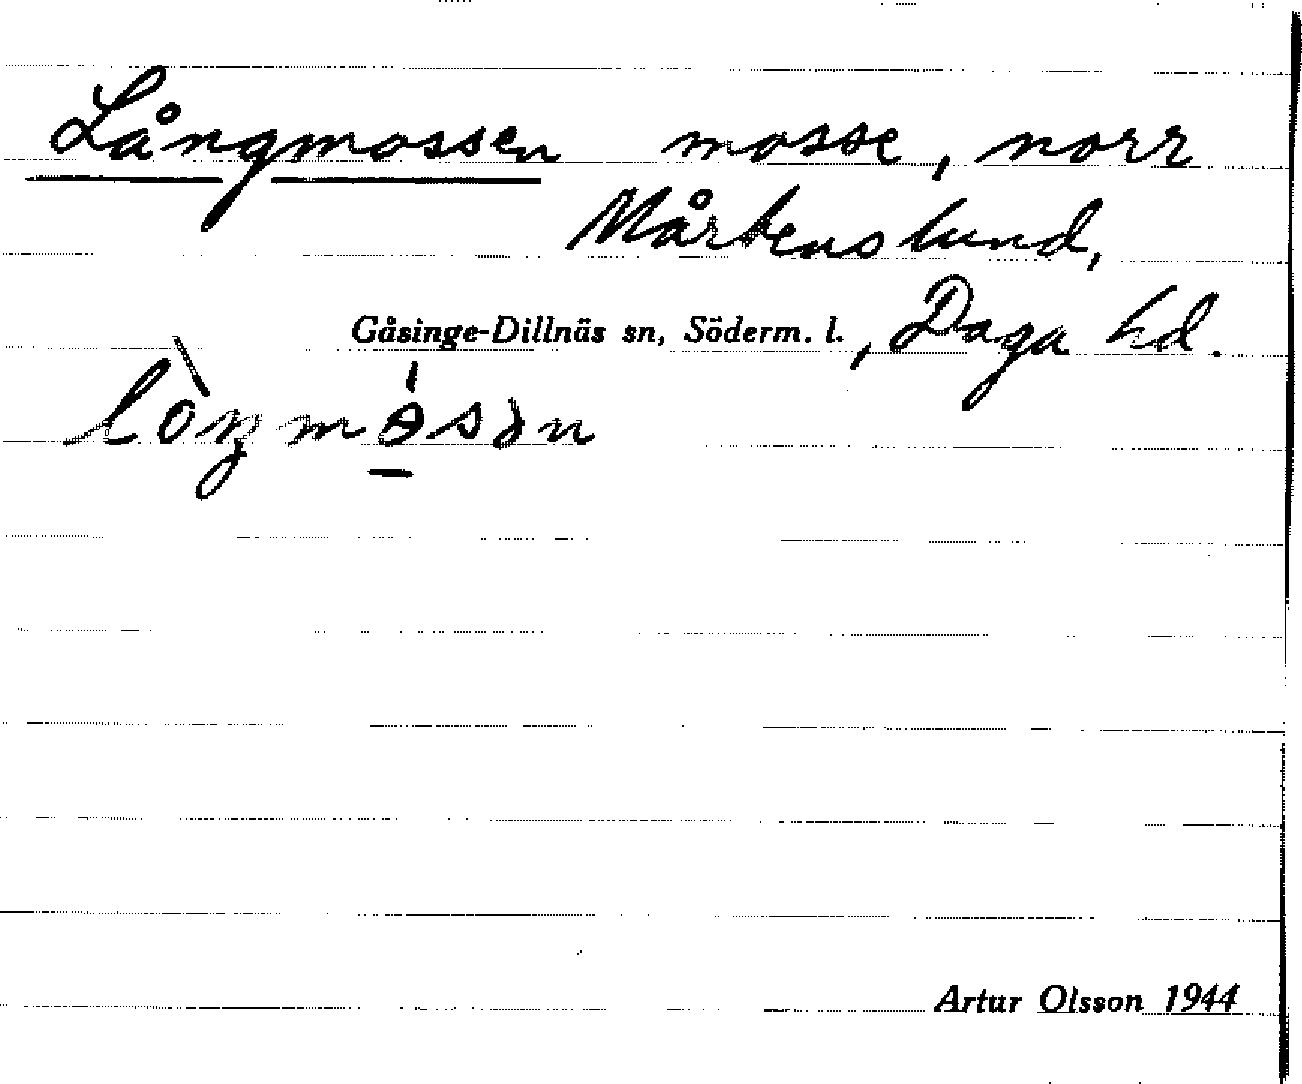 Långmossen mosse, norr
Mårtenslund,
Gåsinge-Dillnäs sn, Söderm. l., Daga hd.
lòŋmɵ́sən
Artur Olsson 1944